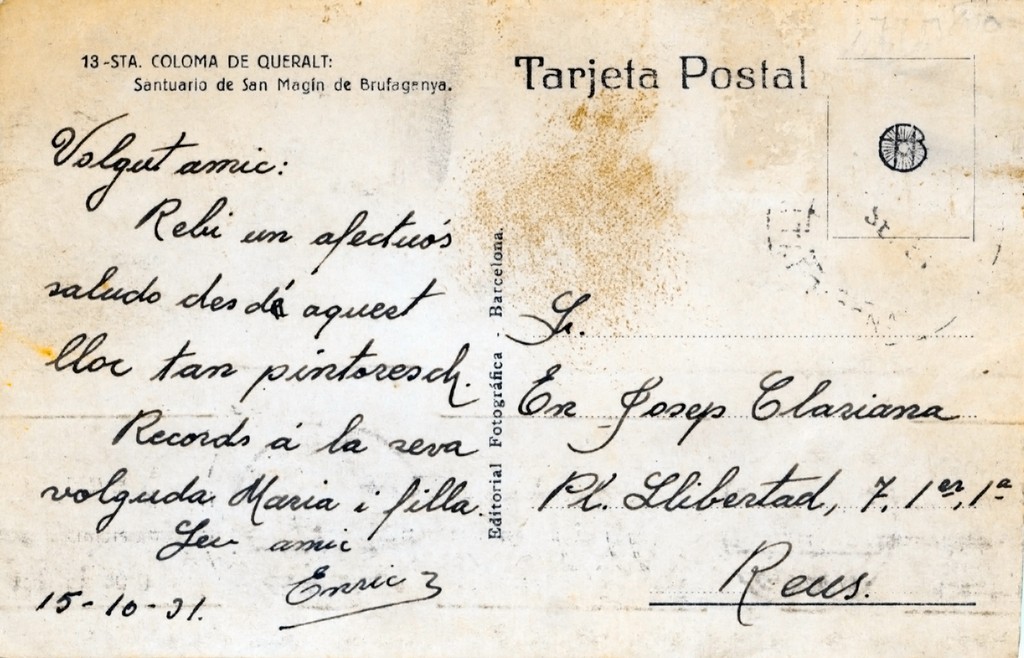 13-STA. COLOMA DE QUERALT:
Santuario de San Magín de Brufaganya.
Tarjeta Postal
Volgut amic:
Rebi un afectuós
saludo desde aquest
lloc tan pintoresch.
Records á la seva
volguda Maria i filla.
Seu amic
Enric
15-10-31.
Editorial Fotográfica - Barcelona.
Sr.
En Josep Clariana
Pl. Llibertad, 7, 1er, 1ª
Reus.